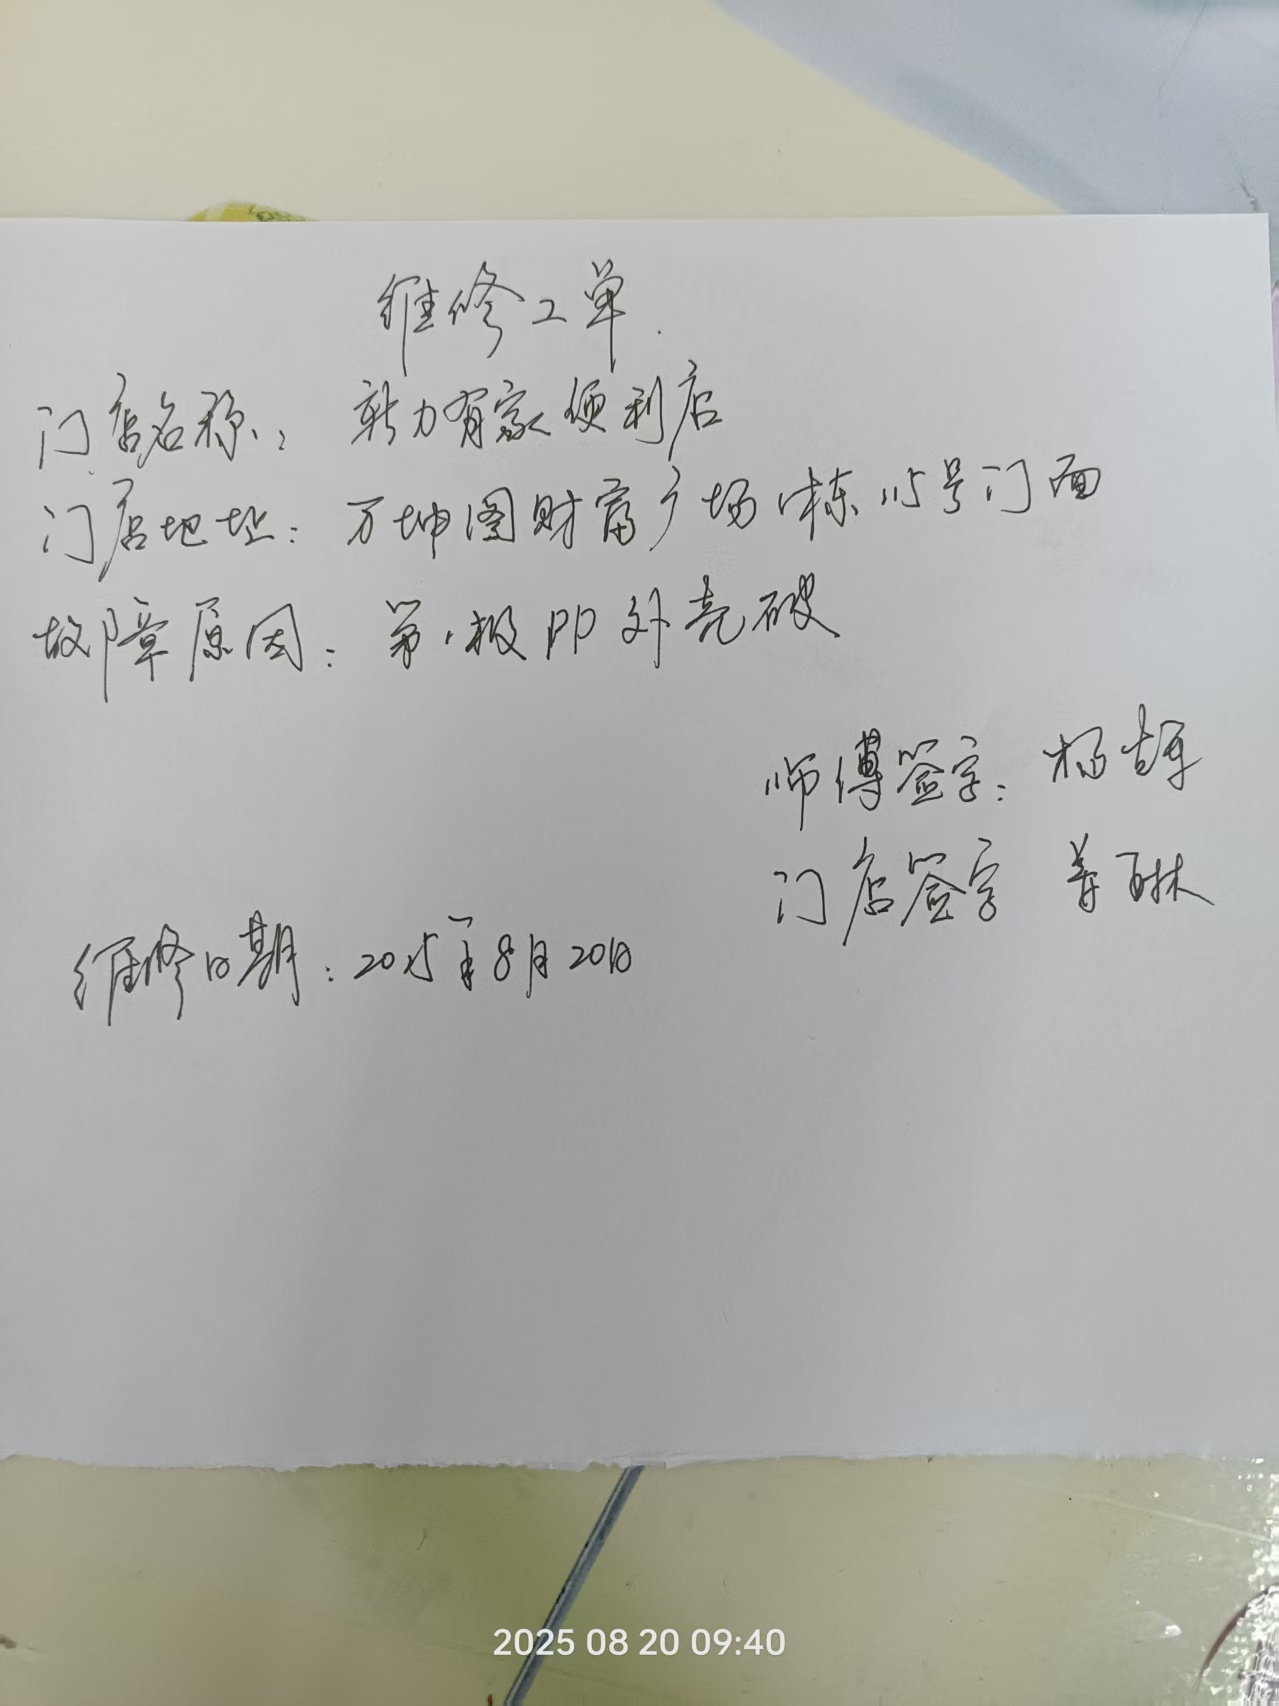 维修工单.
门店名称: 新力有家便利店
门店地址: 万坤图财富广场1栋115号门面
故障原因: 第1极PP外壳破
师傅签字: 杨
门店签字 琳
维修日期: 2025年8月20日
2025 08 20 09:40